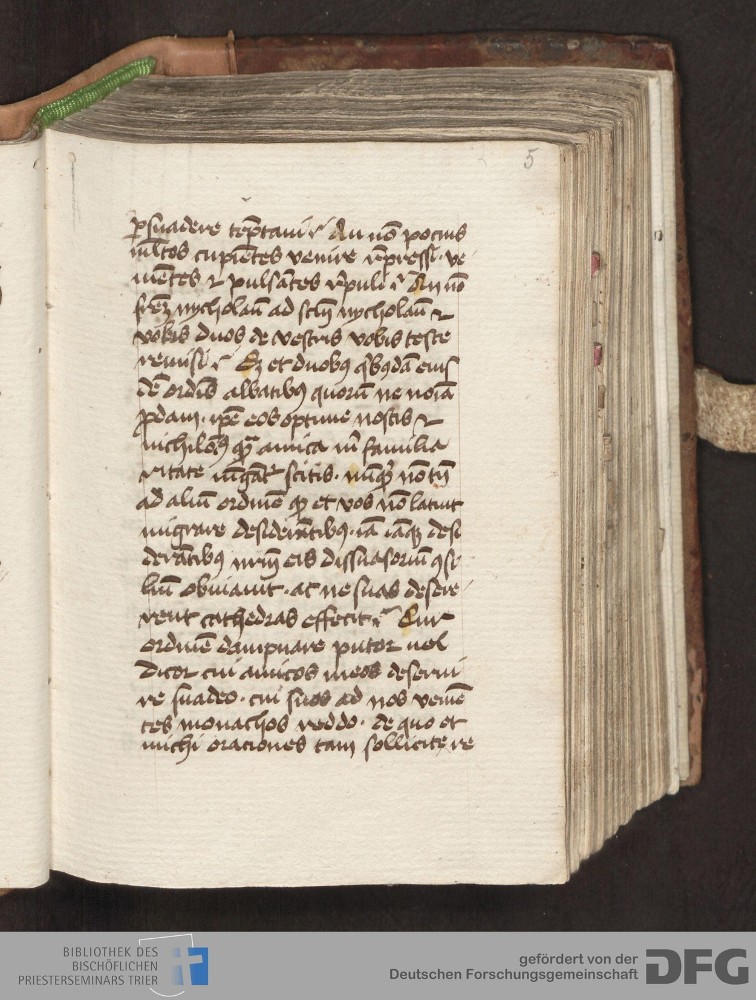 5
ꝑsuadere tēptaui? An nō pocius
ml̄tos cupiētes venire rep̄ressi · ve
niētes ⁊ pulsātes rep̄puli? An nō
fr̄ez nycholaū ad sctm̄ nycholaū ⁊
vobis duos de vestris vobis teste
remisi? Sz et duobꝫ qͥbꝫdā eius
dē ordīs abbatibꝫ quorū ne noīa
ꝓdam · ip̄e eos optime nostis ⁊
nichilomīꝫ qͣ amica m̄ familia
ritate iūgātr̄ scitis · nūqͥd nō tn̄
ad aliū ordinē qd̓ et vos nō latuit
migrare desiderātibꝫ · iā iāqꝫ desi
derātibꝫ nr̄m eis dissuasoriū ꝯsi
liū obuiauit · ac ne suas desere
rent cathedras effecit? Cur
ordinē dampnare putor uel
dicor cui amicos meos deserui
re suadeo · cui suos ad nos veniē
tes monachos reddo · de quo et
michi oraciones tam sollicite re
BIBLIOTHEK DES
BISCHÖFLICHEN
PRIESTERSEMINARS TRIER
gefördert von der
Deutschen Forschungsgemeinschaft
DFG